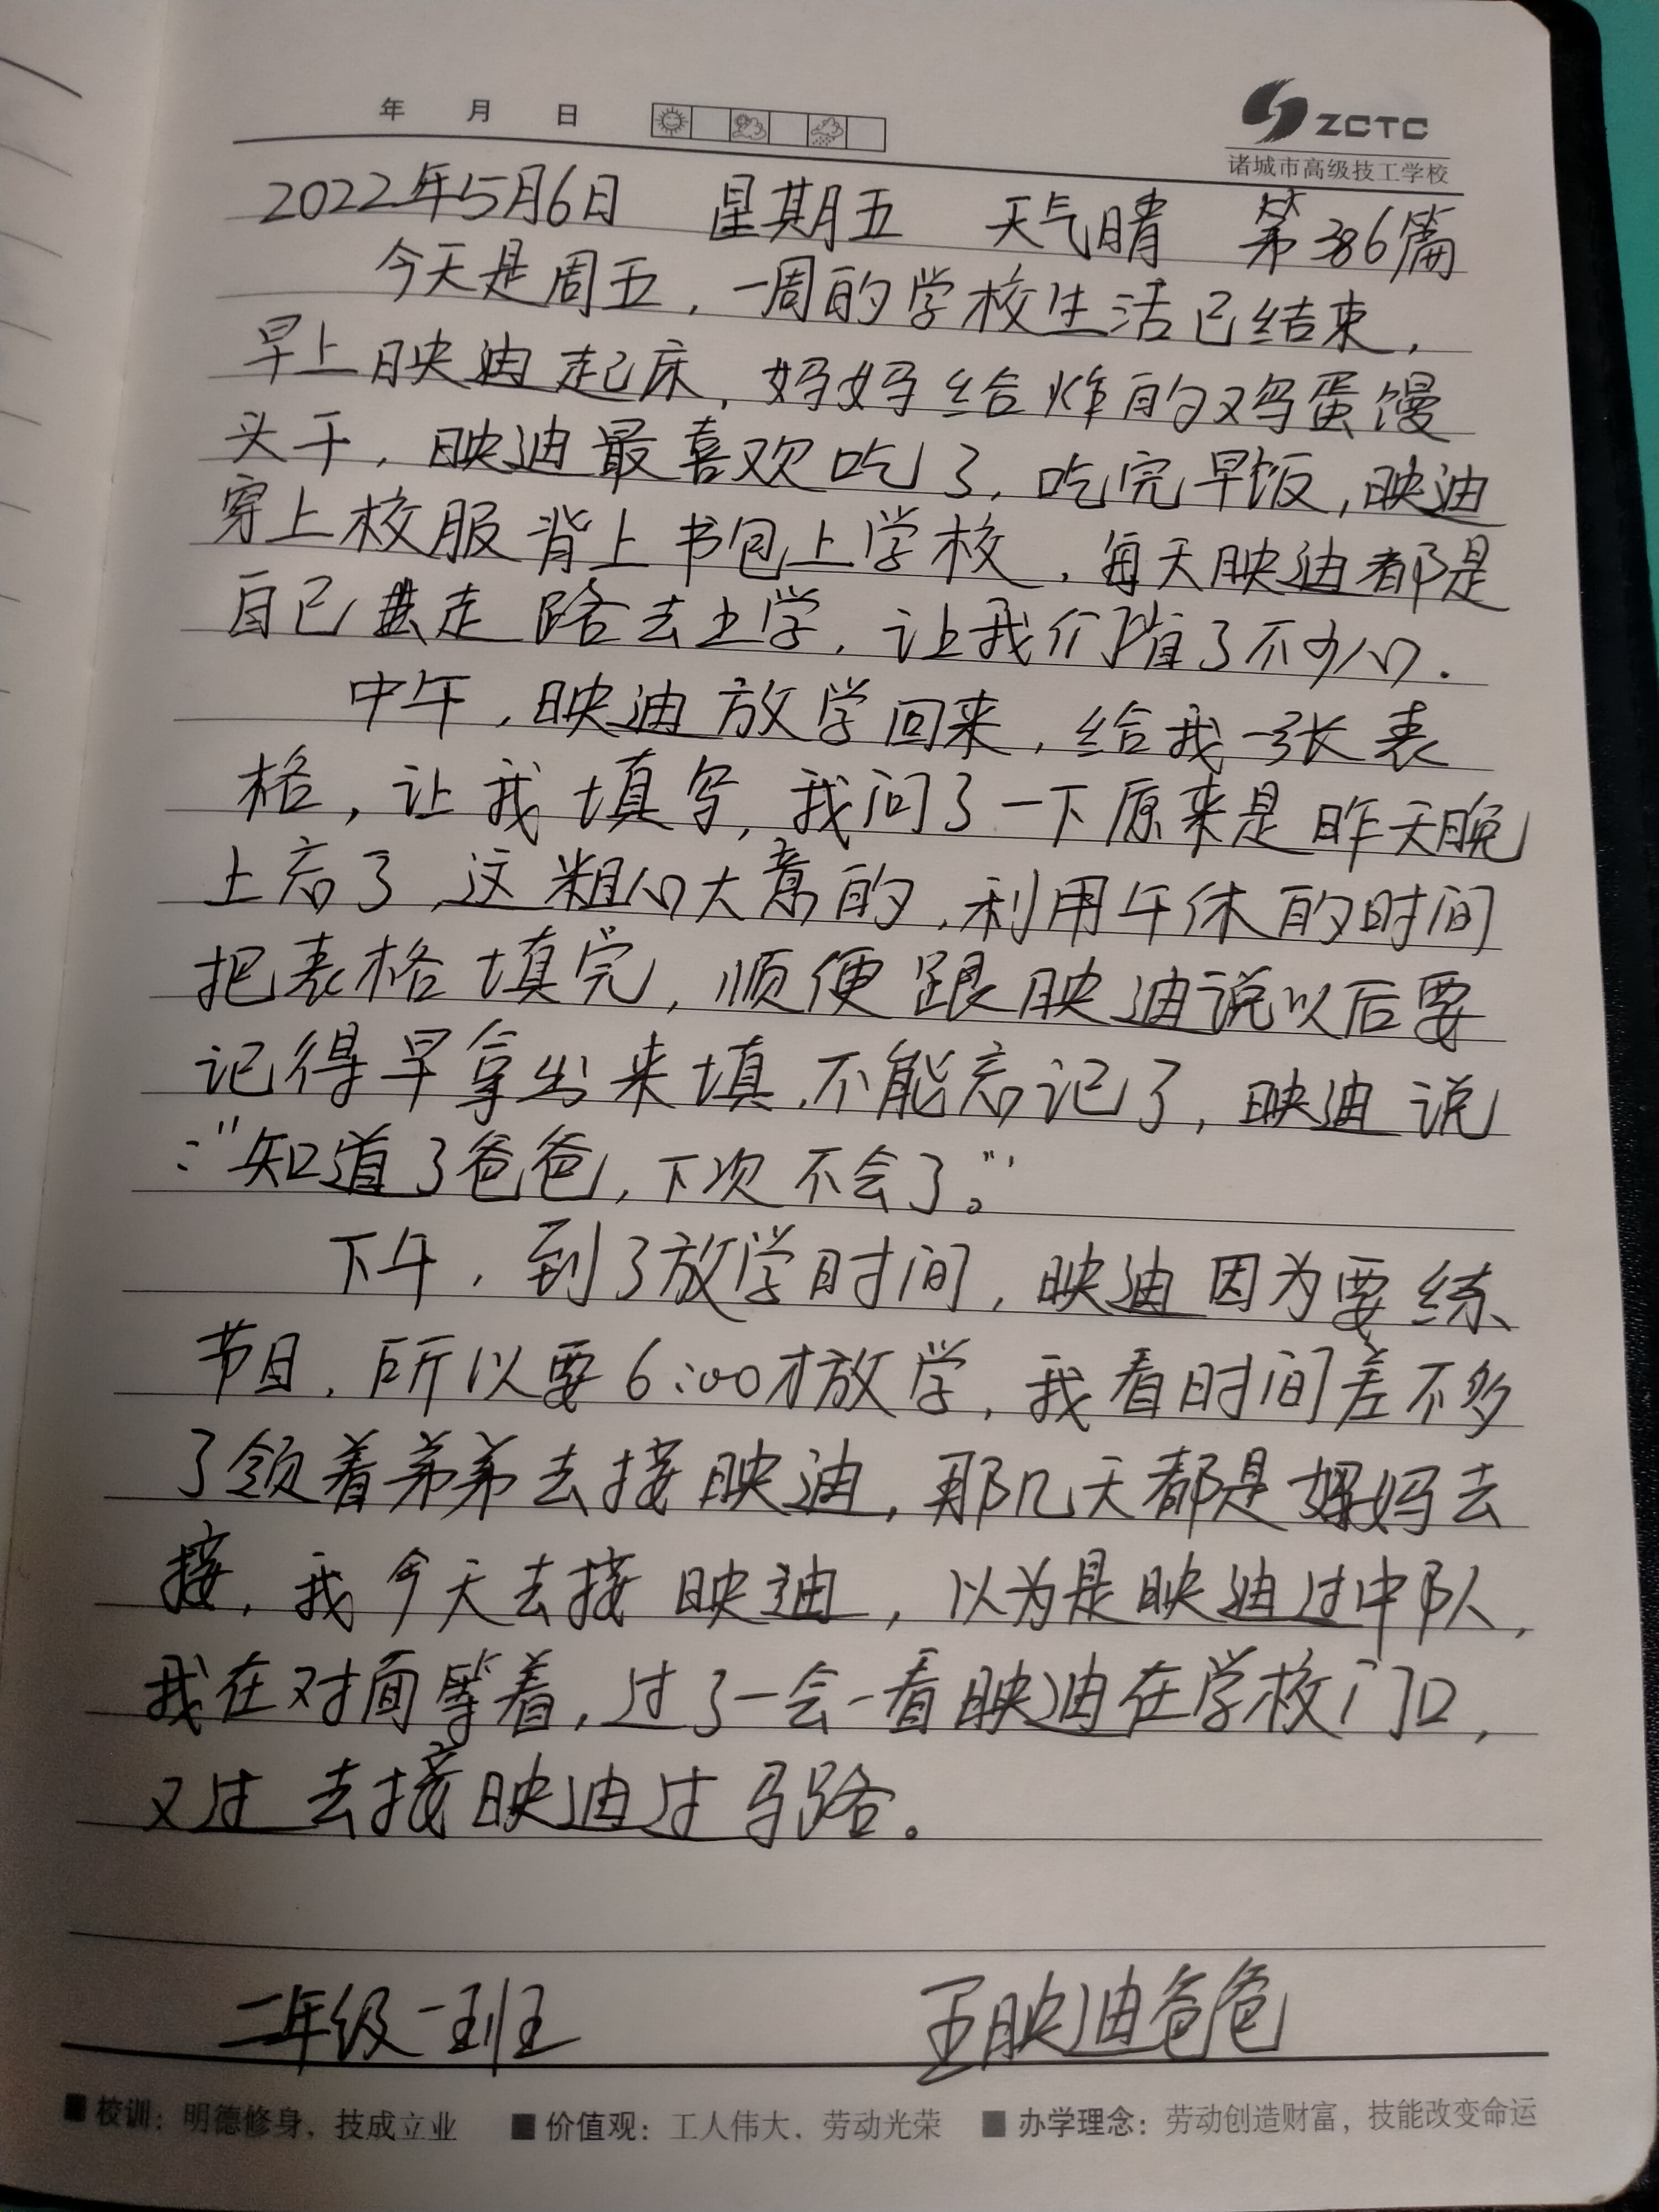 年 月 日
ZCTC
诸城市高级技工学校
2022年5月6日 星期五 天气晴 第386篇
今天是周五，一周的学校生活已结束，
早上映迪起床，妈妈给炸的鸡蛋馒
头干，映迪最喜欢吃了，吃完早饭，映迪
穿上校服背上书包上学校，每天映迪都是
自己走路去上学，让我们省了不少心．
中午，映迪放学回来，给我一张表
格，让我填写，我问了一下原来是昨天晚
上忘了，这粗心大意的，利用午休的时间
把表格填完，顺便跟映迪说以后要
记得早拿出来填，不能忘记了，映迪说
：“知道了爸爸，下次不会了。”
下午，到了放学时间，映迪因为要练
节目，所以要6:00才放学，我看时间差不多
了领着弟弟去接映迪，那几天都是妈妈去
接，我今天去接映迪，以为是映迪过中队，
我在对面等着，过了一会一看映迪在学校门口，
又过去接映迪过马路。
二年级一班 王映迪爸爸
■ 校训：明德修身，技成立业 ■ 价值观：工人伟大，劳动光荣 ■ 办学理念：劳动创造财富，技能改变命运